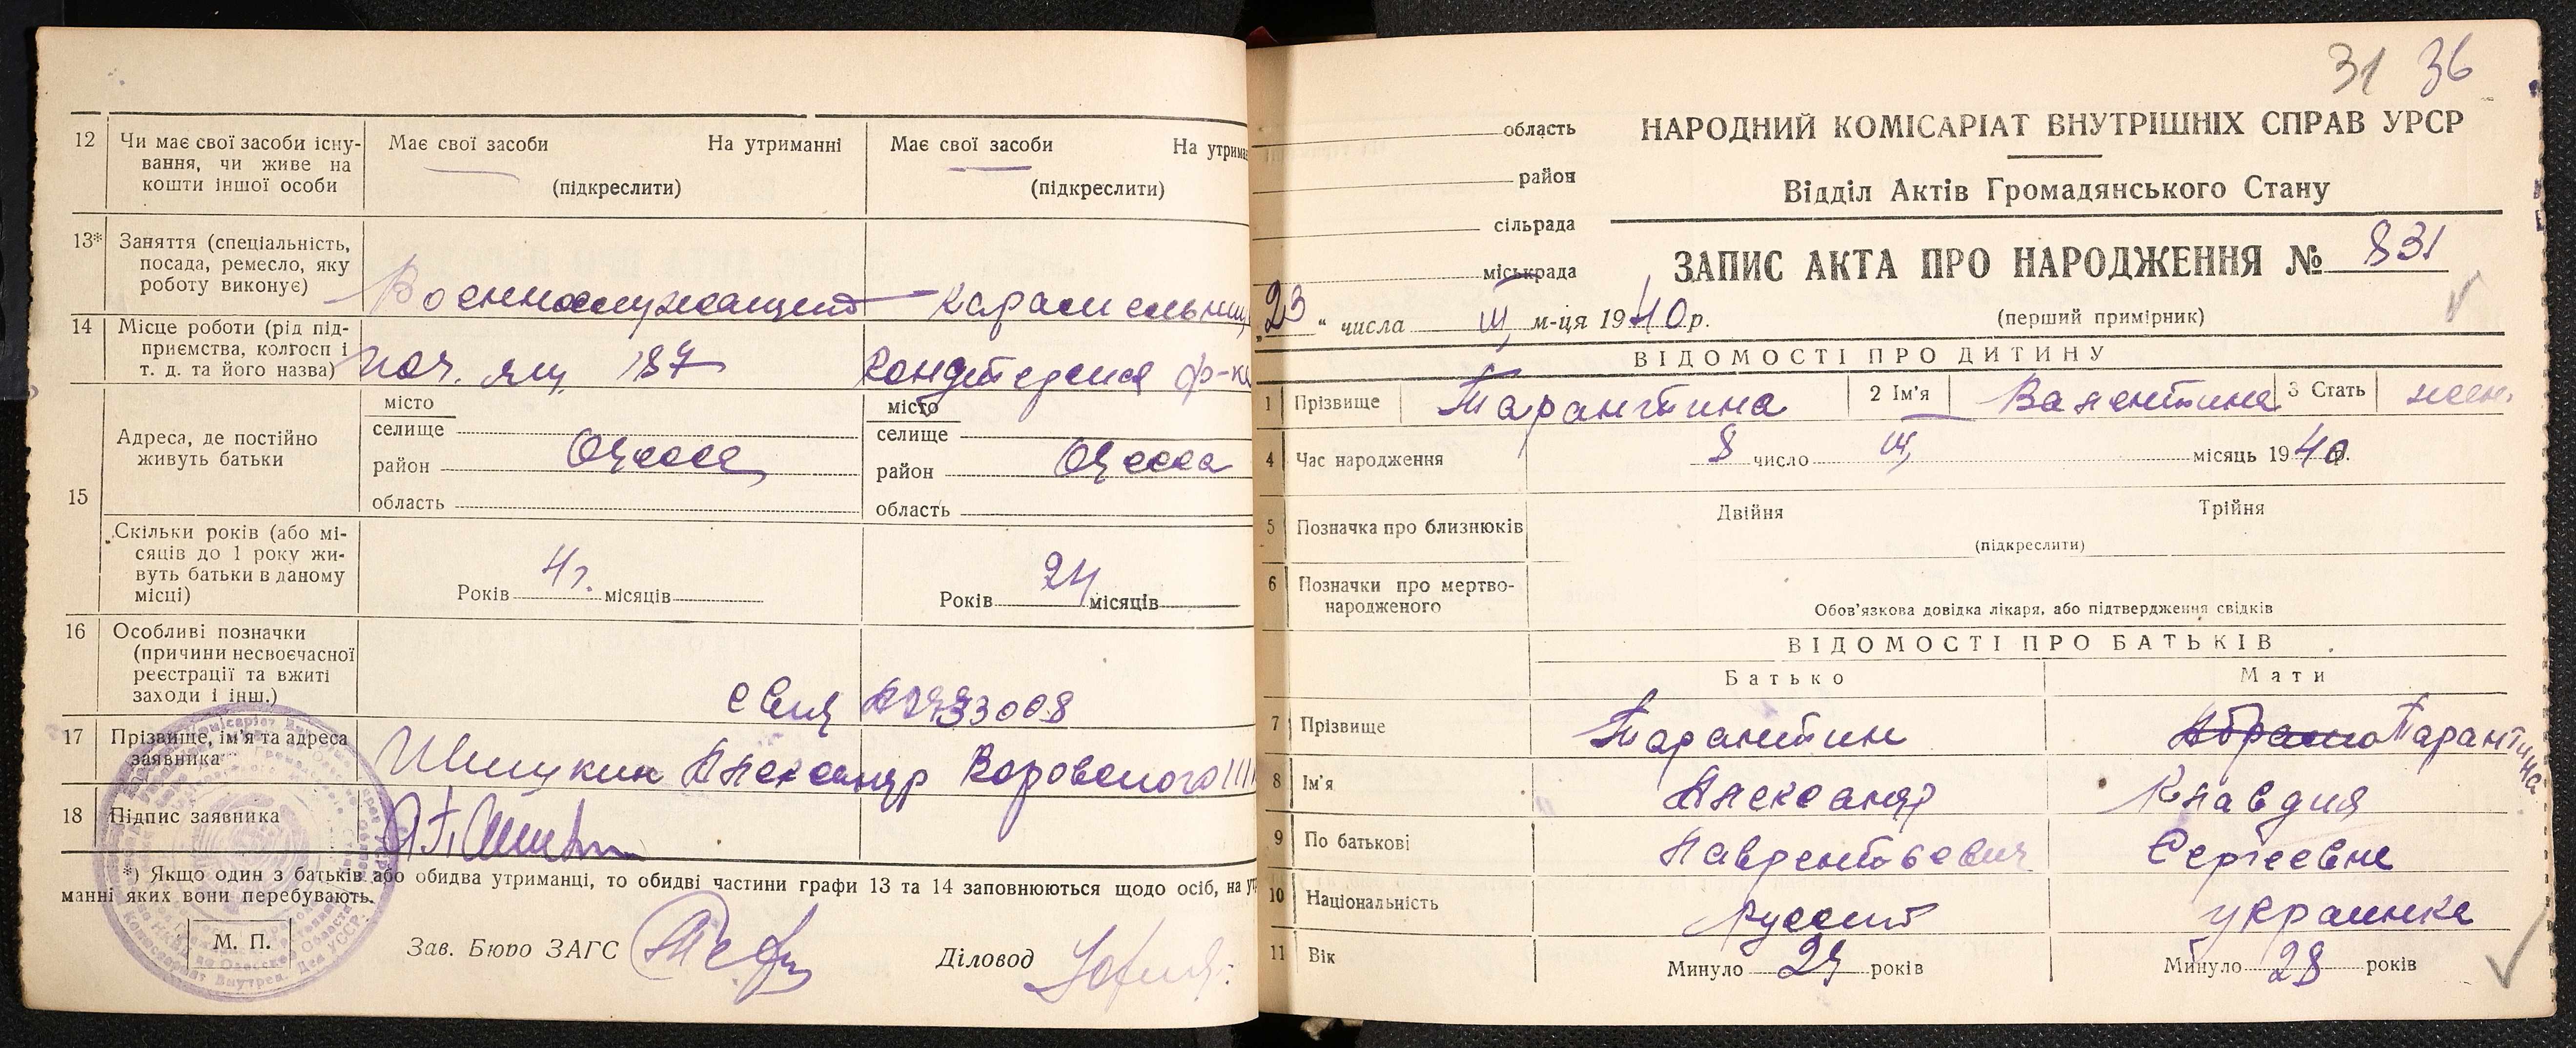 12 Чи має свої засоби існу-
вання, чи живе на
кошти іншої особи
Має свої засоби На утриманні
(підкреслити)
Має свої засоби На утрима
(підкреслити)
13* Заняття (спеціальність,
посада, ремесло, яку
роботу виконує)
Военнослужащий карамельщиц
14 Місце роботи (рід під-
приємства, колгосп і
т. д. та його назва)
поч. ящ. 187 Кондитерская ф-ка
15 Адреса, де постійно
живуть батьки
місто
селище
район Одесса
область
місто
селище
район Одесса
область
Скільки років (або мі-
сяців до 1 року жи-
вуть батьки в даному
місці)
Років 4 г. місяців
Років 24 місяців
16 Особливі позначки
(причини несвоєчасної
реєстрації та вжиті
заходи і інш.)
17 Прізвище, ім'я та адреса
заявника
Александр
18 Підпис заявника
*) Якщо один з батьків або обидва утриманці, то обидві частини графи 13 та 14 заповнюються щодо осіб, на ут
манні яких вони перебувають.
М. П.
Зав. Бюро ЗАГС
Діловод
31 36
область
район
сільрада
міськрада
„23“ числа III м-ця 1940 р.
НАРОДНИЙ КОМІСАРІАТ ВНУТРІШНІХ СПРАВ УРСР
Відділ Актів Громадянського Стану
ЗАПИС АКТА ПРО НАРОДЖЕННЯ № 831
(перший примірник)
ВІДОМОСТІ ПРО ДИТИНУ
1 Прізвище Тарантина 2 Ім'я Валентина 3 Стать жен.
4 Час народження 8 число III місяць 1940 р.
5 Позначка про близнюків Двійня Трійня
(підкреслити)
6 Позначки про мертво-
народженого
Обов'язкова довідка лікаря, або підтвердження свідків
ВІДОМОСТІ ПРО БАТЬКІВ
Батько Мати
7 Прізвище Тарантин Тарантина
8 Ім'я Александр Клавдия
9 По батькові Лаврентьевич Сергеевна
10 Національність русский украинка
11 Вік Минуло років Минуло 28 років